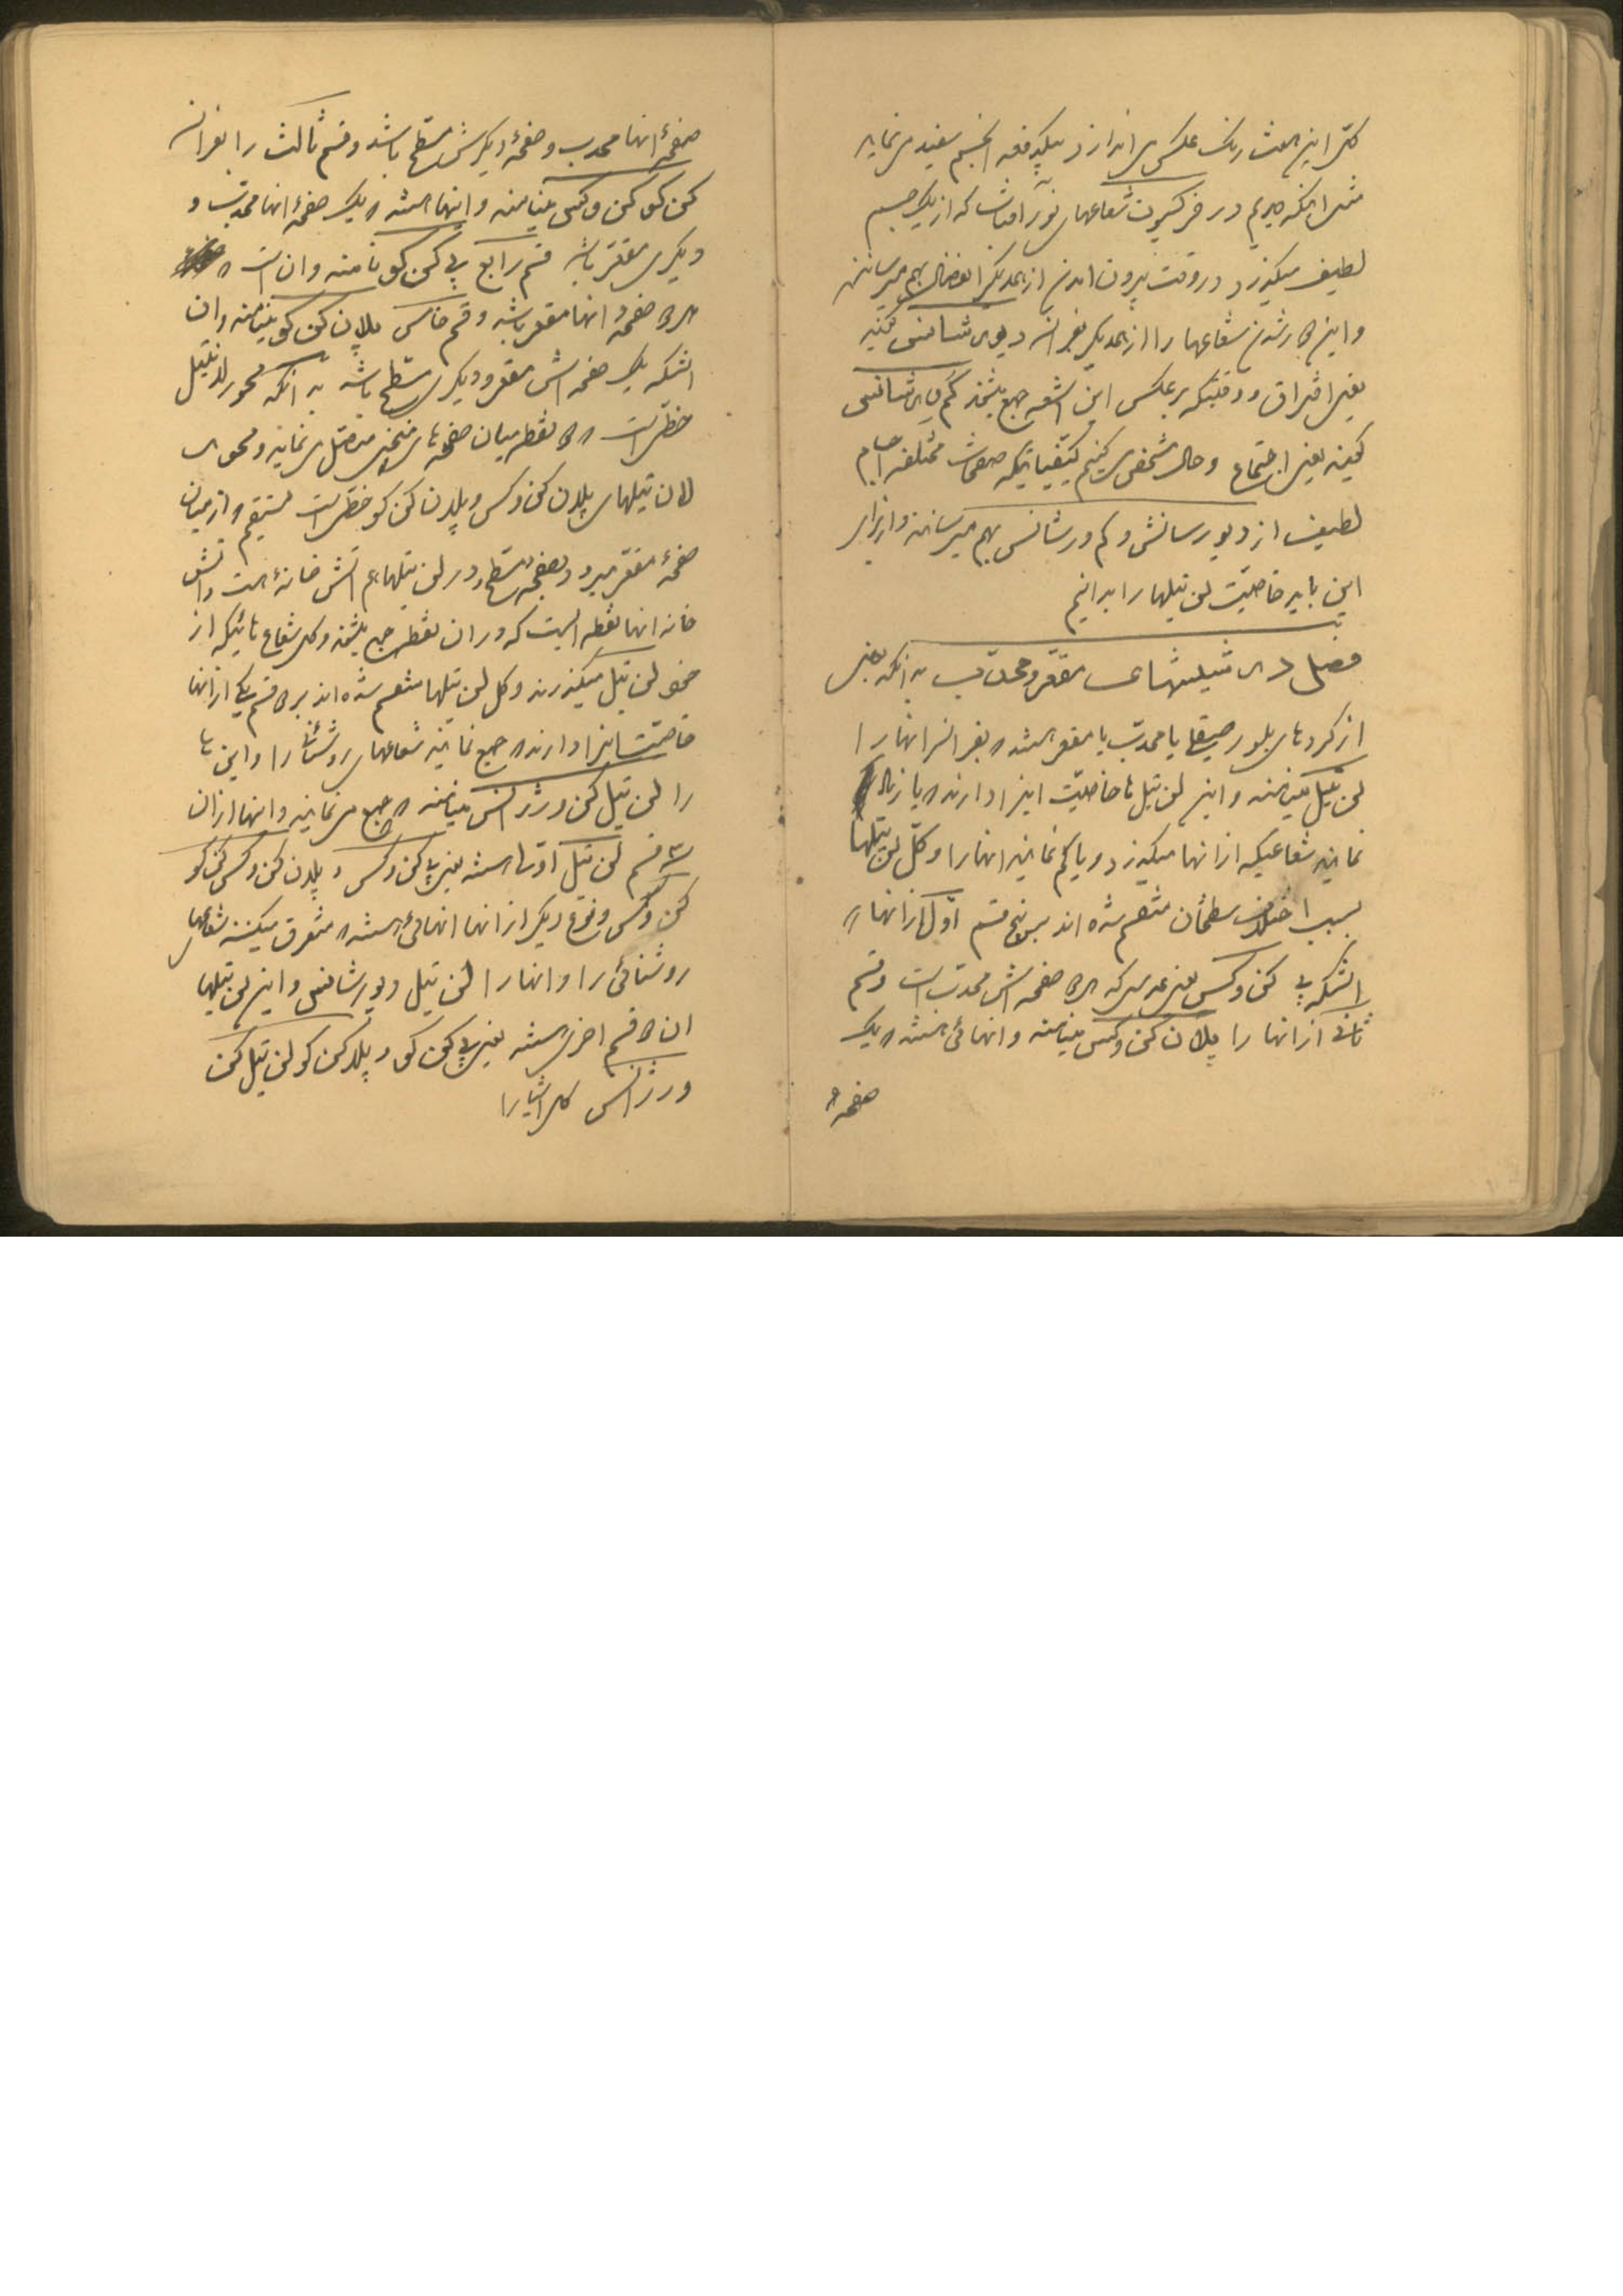 کل این هفت رنگ عکس می اندازد بیکدفعه الجسم سفید می نماید
مثل آنکه دیدیم در رفرکسیون شعاعهای نور آفتاب که از یک جسم
لطیف میگذرد در وقت بیرون آمدن از همدیگر انفصال بهم میرسانند
و این جدا شدن شعاعها را از همدیگر بفرانسه دیورشانس گفتند
یعنی افتراق و وقتیکه برعکس این اشعه جمع بشوند کم ورشانس
گویند یعنی اجتماع و حال مشخص می کنیم کیفیاتیکه صفحات مختلفه اجسام
لطیف از دیورسانش و کم ورشانس بهم میرسانند و از برای
این باید خاصیت لن تیلها را بدانیم
فصل در شیشهای مقعر و محدب بدانکه بعضی
از کردهای بلور صیقلی یا محدب یا مقعر هستند که بفرانسه آنها را
لن تیل مینامند و این لن تیل ها خاصیت این را دارند که یا زیاد
نمایند شعاعیکه از آنها میگذرد و یا کم نمایند آنها را و کل لن تیلها
بسبب اختلاف سطحشان منقسم شده اند بر پنج قسم اول از آنها
آنست که بی کن وکس یعنی عدسی که هر دو صفحه اش محدب است و قسم
ثانی از آنها را پلان کن وکس مینامند و آنهائی هستند که یک
صفحه
صفحهٔ آنها محدب و صفحهٔ دیگرش مسطح باشد و قسم ثالث را بفرانسه
کن کو کن وکس مینامند و اینها هستند که یک صفحهٔ آنها محدب و
دیگری مقعر باشد قسم رابع بی کن کو نامند و آن است که
هر دو صفحهٔ آنها مقعر باشد و قسم خامس پلان کن کو مینامند و آن
آنستکه یک صفحه اش مقعر و دیگری مسطح باشد بدانکه محور لن تیل
خطی است که دو نقطه میان صفحه های منحنی متصل می نماید و محور
لن تیلهای پلان کن وکس و پلان کن کو خطی است مستقیم که از میان
صفحهٔ مقعر میرود و بصفحهٔ مسطح و در لن تیلها هم آتش خانهٔ است و آتش
خانه آنها نقطه ایست که در آن نقطه جمع بشوند کل شعاع هائیکه از
خود لن تیل میگذرند و کل لن تیلها منقسم شده اند بر دو قسم یکی از آنها
خاصیت این را دارند که جمع نمایند شعاعهای روشنائی را و این ها
را لن تیل کن ورژانس مینامند که جمع می نمایند و اینها از آن
سه قسم لن تیل اول هستند یعنی بی کن وکس و پلان کن وکس کن کو
کن وکس و نوع دیگر از آنها آنهائی هستند که متفرق میکنند شعاعهای
روشنائی را و آنها را لن تیل دیورشانس و این لن تیلها
آن دو قسم آخر هستند یعنی بی کن کو و پلان کن کو لن تیل کن
ورژانس کل اشیا را